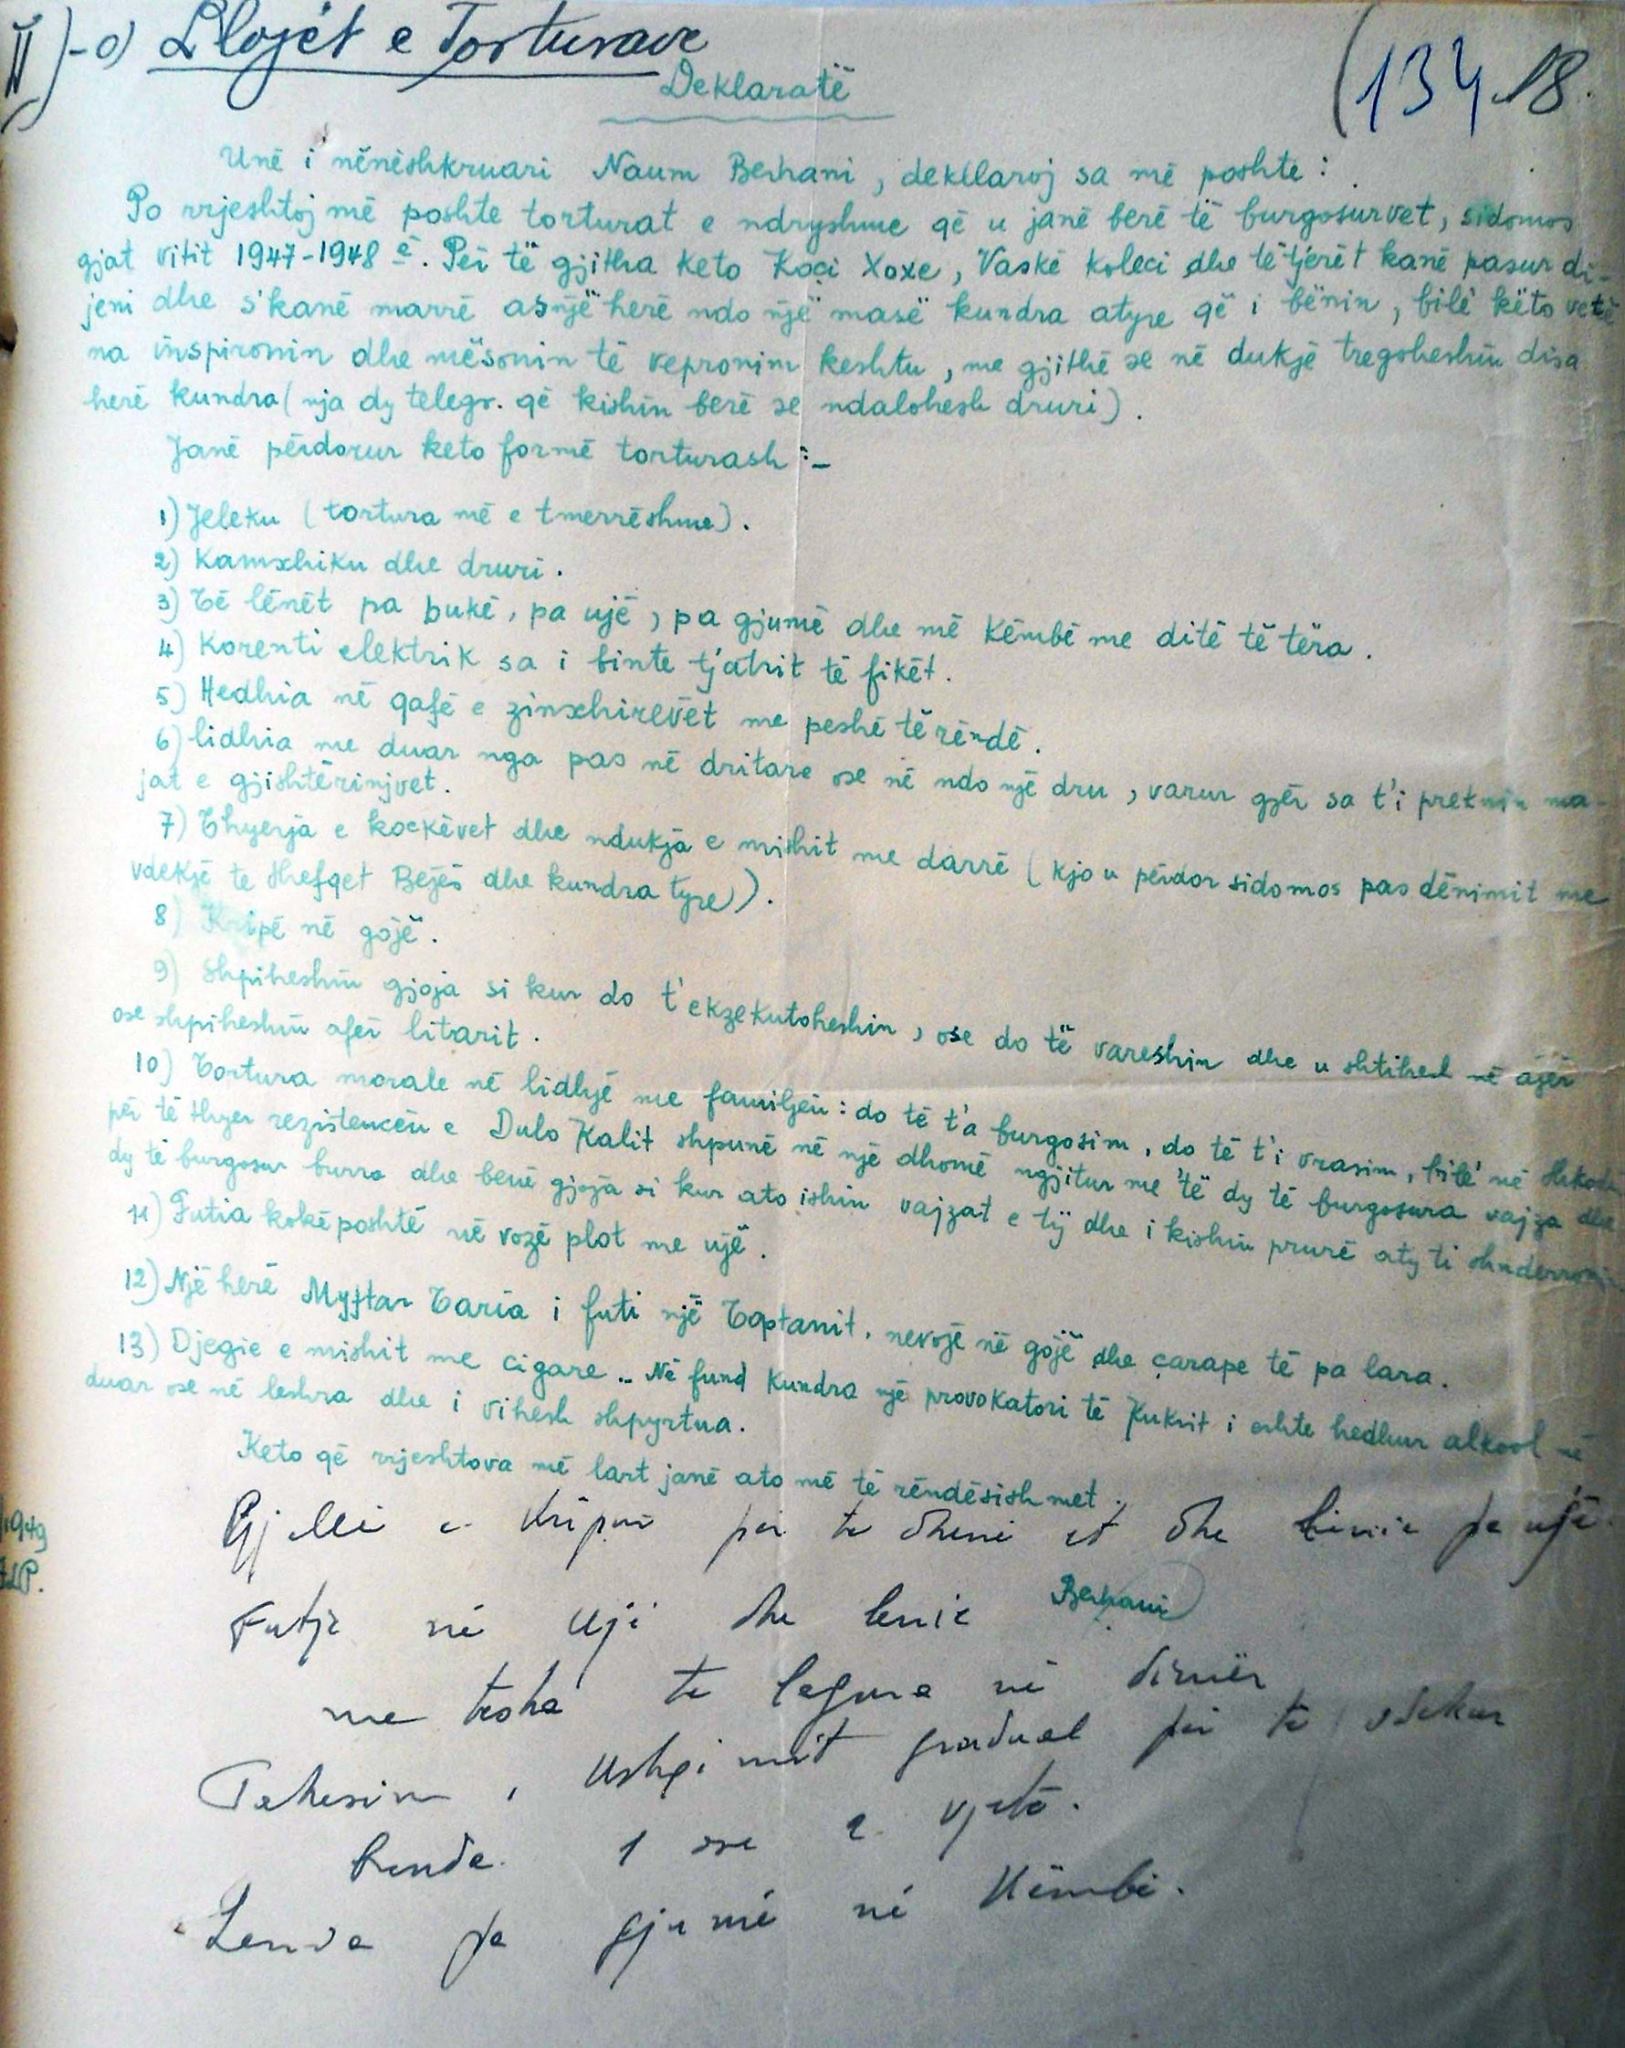 II)-a) Llojët e Torturave
Deklaratë
(134 18.
Unë i nënëshkruari Naum Bezhani, dekllaroj sa më poshte:
Po rrjeshtoj më poshte torturat e ndryshme që u janë berë të burgosurvet, sidomos
gjat vitit 1947-1948 ë. Për të gjitha keto Koçi Xoxe, Vaskë Koleci dhe të tjerët kanë pasur di-
jeni dhe s'kanë marrë asnjë herë ndo një masë kundra atyre që i bënin, bilé këto vetë
na inspironin dhe mësonin të vepronim keshtu, me gjithë se në dukjë tregoheshin disa
herë kundra (nja dy telegr. që kishin berë se ndalohesh druri).
Janë përdorur keto formë torturash:-
1) Jeleku (tortura më e tmerrëshme).
2) Kamxhiku dhe druri.
3) Të lënët pa bukë, pa ujë, pa gjumë dhe më këmbë me ditë të tëra.
4) Korenti elektrik sa i binte tjatrit të fikët.
5) Hedhia në qafë e zinxhirevët me peshë të rëndë.
6) lidhia me duar nga pas në dritare ose në ndo një dru, varur gjër sa t'i preknin ma-
jat e gjishtërinjvet.
7) Thyerja e kockëvet dhe ndukja e mishit me darrë (kjo u përdor sidomos pas dënimit me
vdekjë te Shefqet Bejës dhe kundra tyre).
8) Kripë në gojë.
9) Shpiheshin gjoja si kur do t'ekzekutoheshin, ose do të vareshin dhe u shtihesh në ajër
ose shpiheshin afër litarit.
10) Tortura morale në lidhjë me familjen: do të t'a burgosim, do të t'i vrasim, bilé në Shkodër
për të thyer rezistencën e Dulo Kalit shpunë në një dhomë ngjitur me të dy të burgosura vajza dhe
dy të burgosur burra dhe benë gjoja si kur ato ishin vajzat e tij dhe i kishin prurë aty ti shnderronin
11) Futia kokëposhtë në vozë plot me ujë.
12) Një herë Myftar Taria i futi një Toptanit, nevojë në gojë dhe çarape të pa lara.
13) Djegie e mishit me cigare.. Në fund kundra një provokatori të Kuksit i eshte hedhur alkool në
duar ose në leshra dhe i vihesh shpyrtua.
Keto që rrjeshtova më lart janë ato më të rëndësishmet.
Gjelle e kripur për te dhenë et dhe lënie pa ujë.
1949
Bezhani
Futje në ujë dhe lenie
me tesha te lagura në dimër
ushqimit gradual për te vdekur
brenda 1 ose 2 vjetë.
pa gjumë në këmbë.